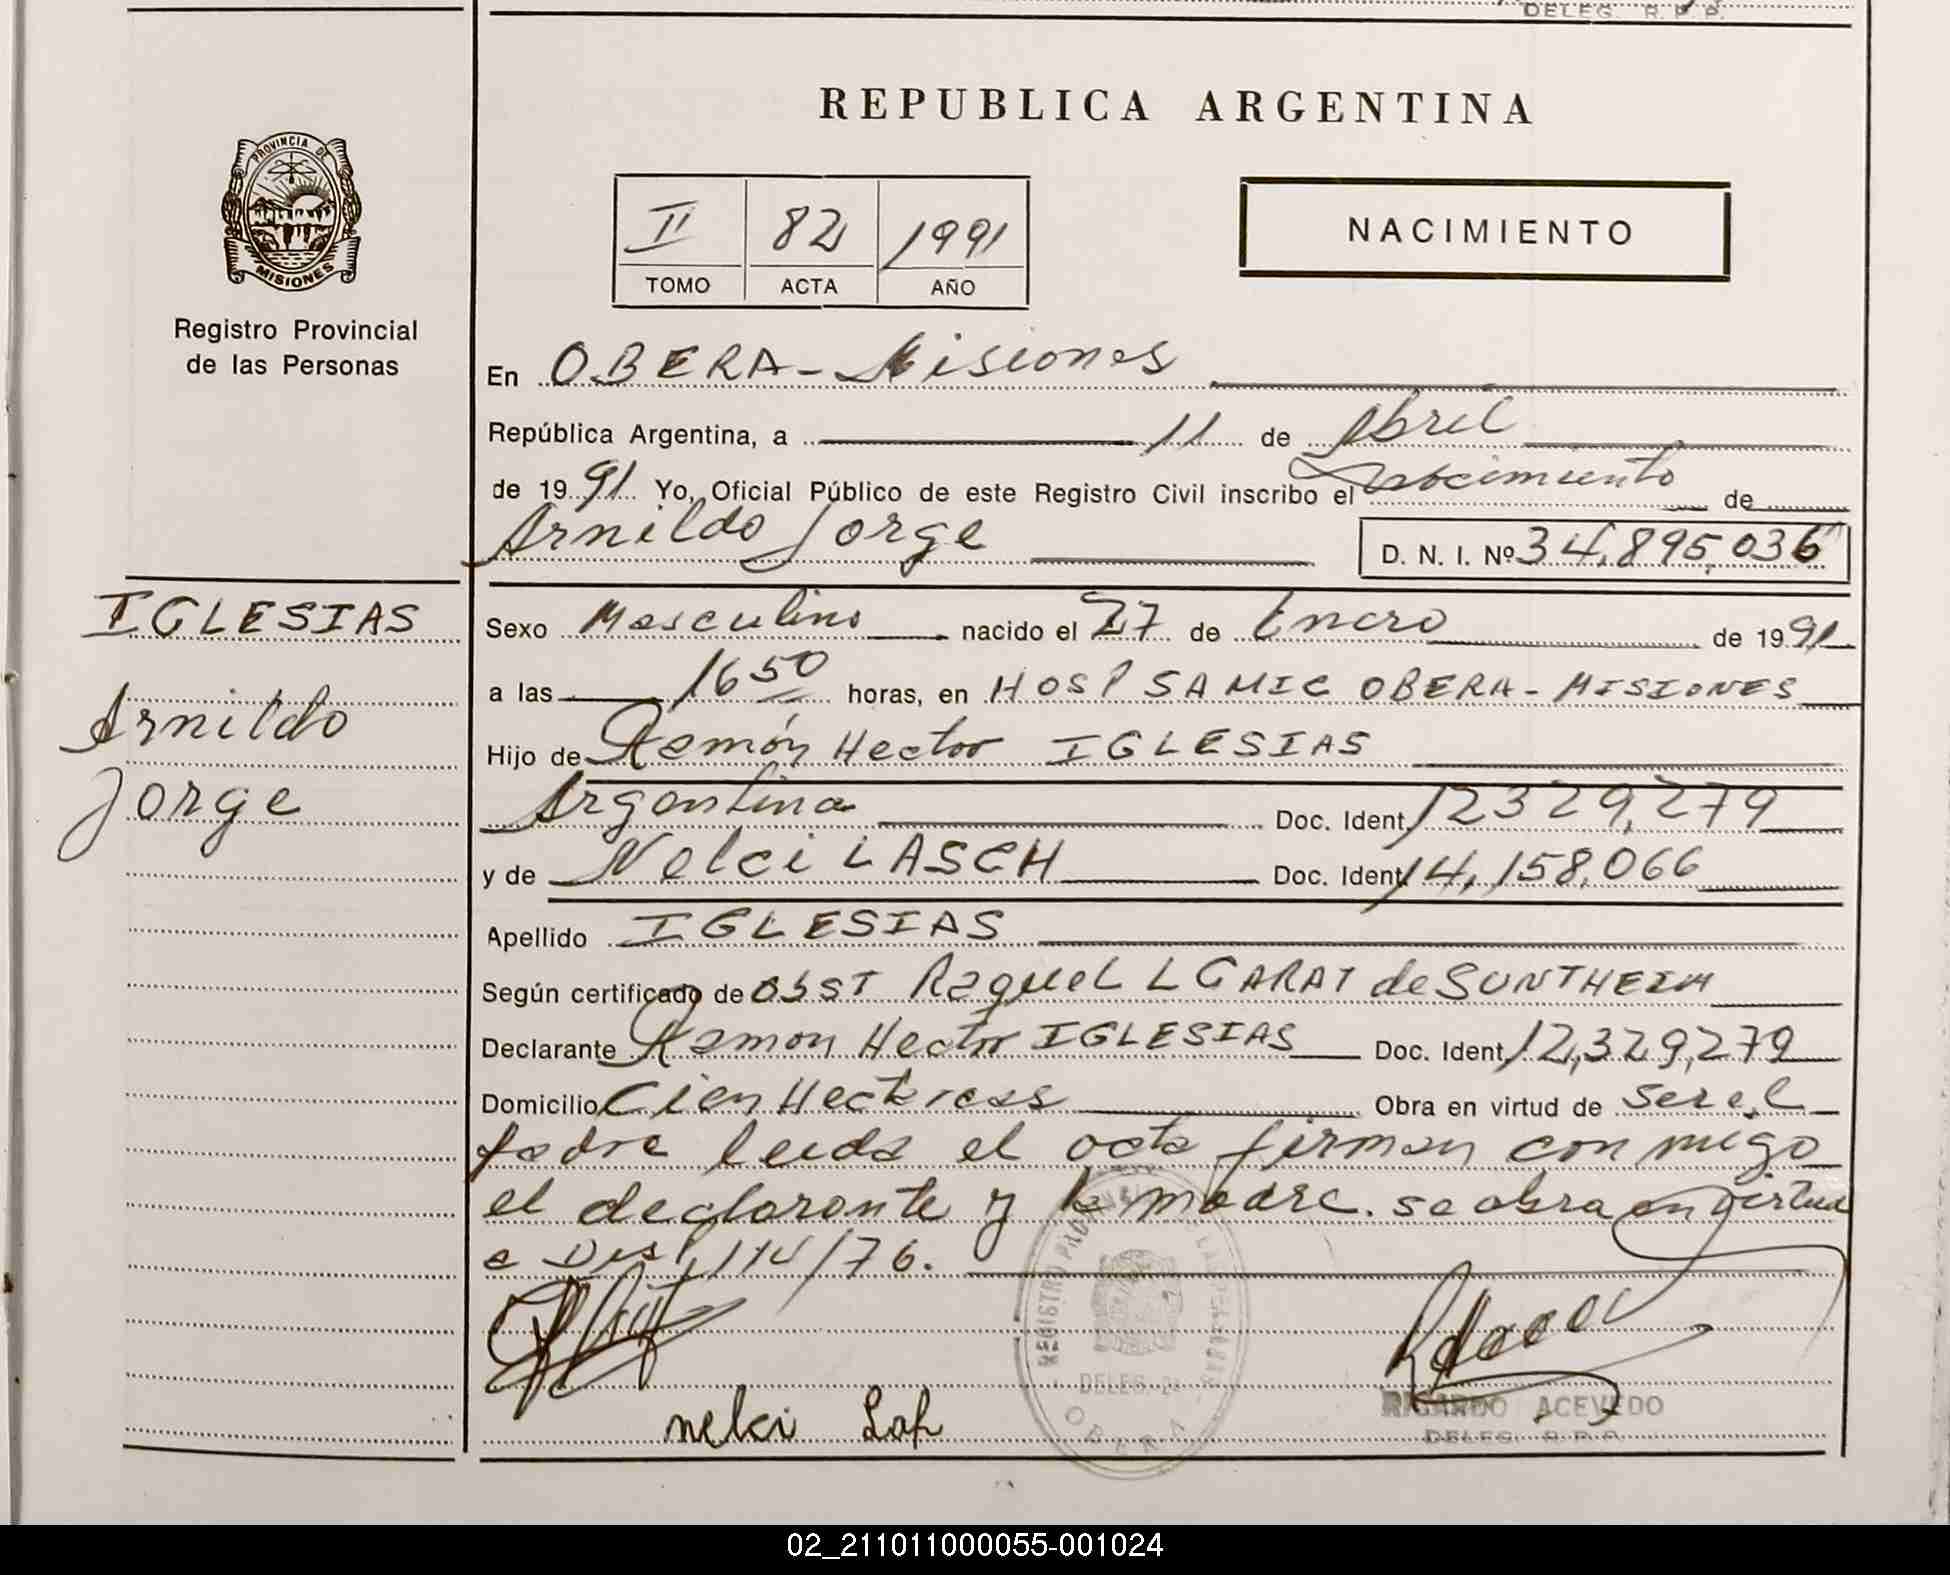 DELEG. R. P. P.
REPUBLICA ARGENTINA
PROVINCIA DE
MISIONES
Registro Provincial
de las Personas
II 82 1991
TOMO ACTA AÑO
NACIMIENTO
En OBERA - Misiones
República Argentina, a 11 de Abril
de 1991 Yo, Oficial Público de este Registro Civil inscribo el Nacimiento de
Arnildo Jorge D. N. I. Nº 34.895.036
IGLESIAS
Arnildo
Jorge
Sexo Masculino nacido el 27 de Enero de 1991
a las 16 50 horas, en HOSP SAMIC OBERA - MISIONES
Hijo de Ramón Hector IGLESIAS
Argentina Doc. Ident. 12329,279
y de Nelci LASCH Doc. Ident. 14,158,066
Apellido IGLESIAS
Según certificado de Obst Raquel L GARAY de SUNTHEIM
Declarante Ramon Hector IGLESIAS Doc. Ident. 12,329,279
Domicilio Cien Hectareas Obra en virtud de ser el
padre leida el acta firman conmigo
el declarante y la madre. se obra en virtud
a /76.
nelci
REGISTRO PROVINCIAL DE LAS PERSONAS
DELEG.
OBERA
RICARDO ACEVEDO
DELEG. R. P. P.
02_211011000055-001024